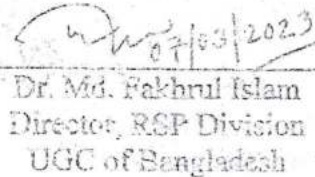 07/03/2023
Dr. Md. Fakhrul Islam
Director, RSP Division
UGC of Bangladesh